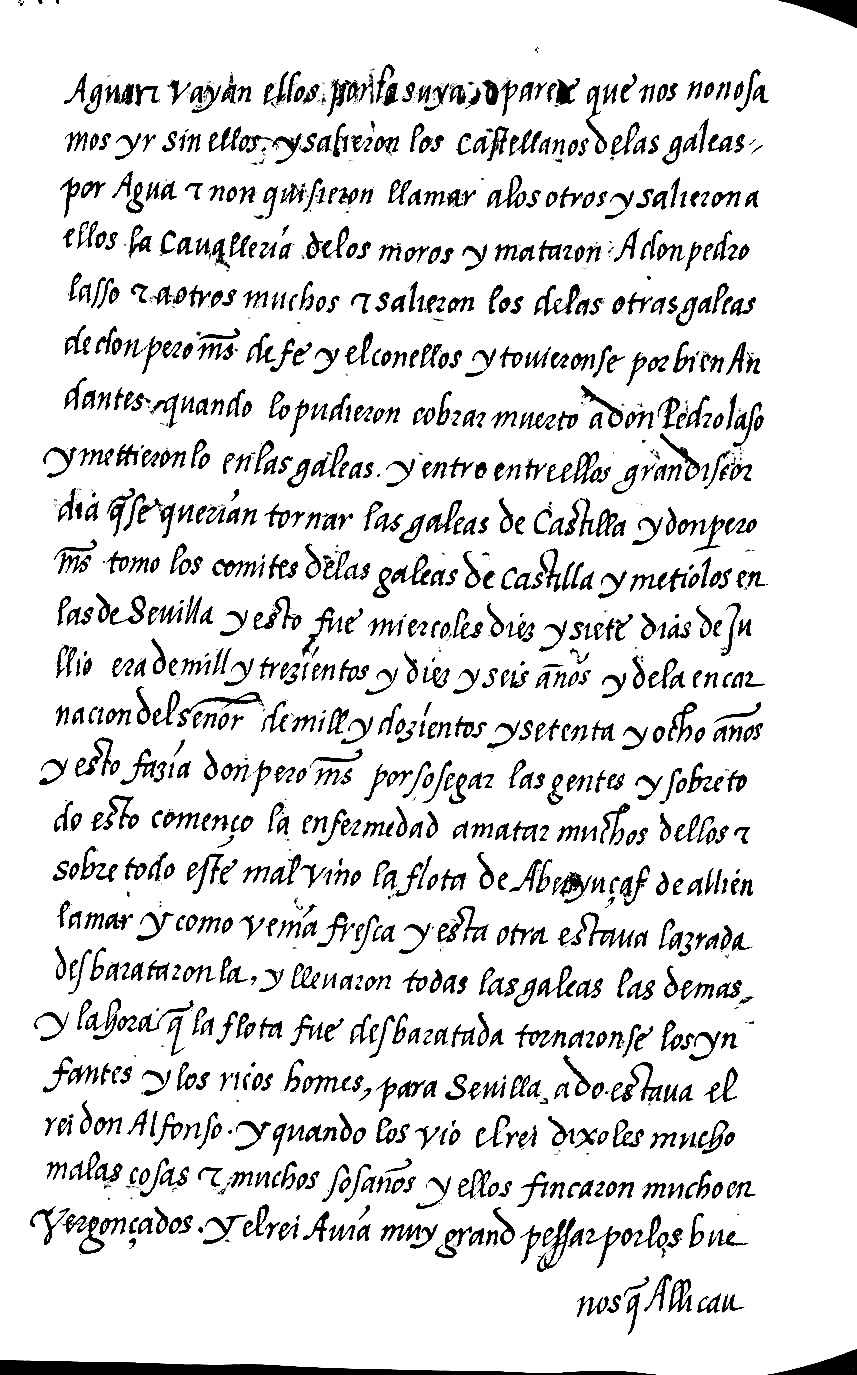 Aguar τ vayan ellos por la suya, o parece que nos no nosa
mos yr sin ellos, y salieron los castellanos de las galeas
por Agua τ non quisieron llamar a los otros y salieron a
ellos la Cauallería de los moros y mataron A don pedro
lasso τ a otros muchos τ salieron los de las otras galeas
de don pero m̃s de fe y el con ellos y touieronse por bien An
dantes, quando lo pudieron cobrar muerto a don Pedro laso
y mettieronlo en las galeas. y entro entre ellos gran discor
dia q̃ se querían tornar las galeas de Castilla y don pero
m̃s tomo los comites de las galeas de castilla y metiólos en
las de Sevilla y esto fue miercoles diez y siete dias de Ju
llio era de mill y trezíentos y diez y seis años y de la encar
nacion del señor de mill y dozíentos y setenta y ocho años
y esto fazía don pero m̃s por sosegar las gentes y sobre to
do esto començo la enfermedad a matar muchos dellos τ
sobre todo este mal vino la flota de Abenyuçaf de allien
la mar y como venía fresca y esta otra estaua lazrada
desbarataronla, y lleuaron todas las galeas las demas,
y la hora q̃ la flota fue desbaratada tornaronse los yn
fantes y los ricos homes, para Sevilla, a do estaua el
rei don Alfonso. y quando los vio el rei dixoles mucho
malas cosas τ muchos sosaños y ellos fincaron mucho en
Vergonçados. y el rei Auía muy grand pessar por los bue
nos q̃ Alli cau